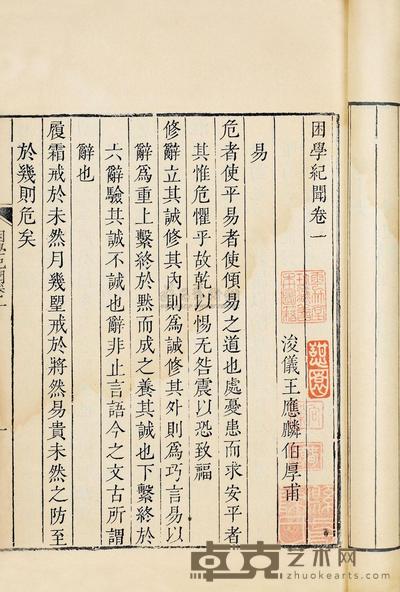 困學紀聞卷一
浚儀王應麟伯厚甫
易
危者使平易者使傾易之道也處憂患而求安平者
其惟危懼乎故乾以惕无咎震以恐致福
修辭立其誠修其內則為誠修其外則為巧言易以
辭為重上繫終於黙而成之養其誠也下繫終於
六辭驗其誠不誠也辭非止言語今之文古所謂
辭也
履霜戒於未然月幾望戒於將然易貴未然之防至
於幾則危矣
卓克艺术网
zhuokearts.com